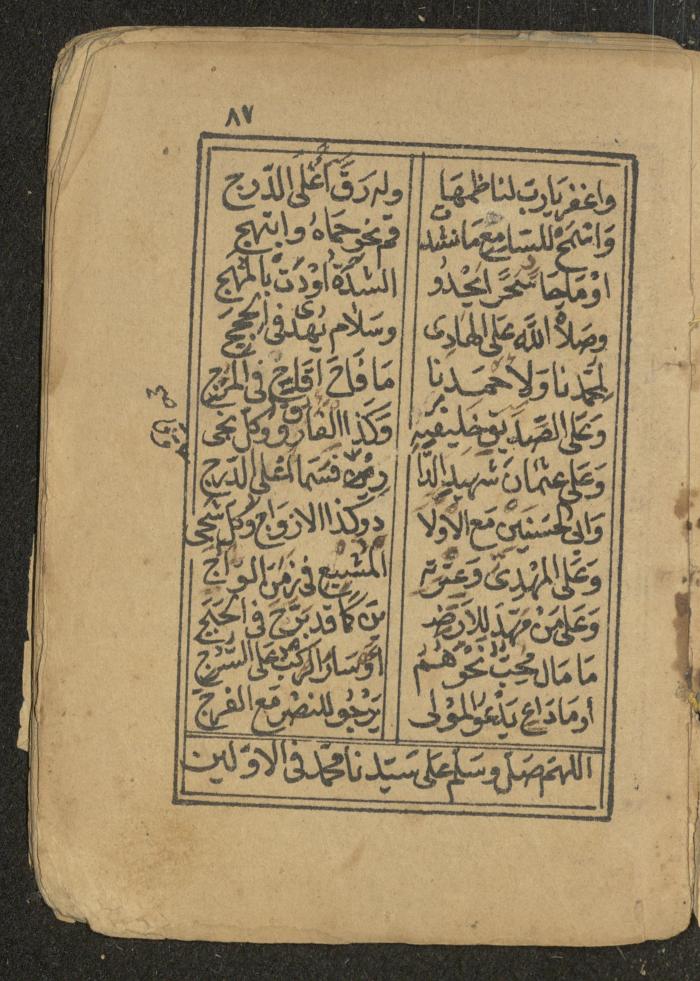 ٨٧
واغفر يا رب لناظمها وله رق أعلى الدرج
واسمح للسامع ما نشدت قم نحو حماه وابتهج
او ما حا سحرا يحدو الشدة اودت بالمهج
وصلاة الله على الهادى وسلام يهدى فى الحجج
لمحمدنا ولاحمدنا ما فاح اقليح فى المرج
وعلى الصديق خليفته وكذا الفاروق وكل نجى
وعلى عثمان شهيد الدا فسما لعلى الدرج
وابى الحسنين مع الاولا دوكذا الازواج وكل شجى
وعلى المهدى وعترته المشبع فى زمن الواج
وعلى من مهد للارض تن كما قد برح فى الحجج
ما مال محب نحوهم أو سار الركب على السرج
أو ما داع يدعو المولى يرجو للنصر مع الفرج
اللهم صل وسلم على سيدنا محمد فى الاولين